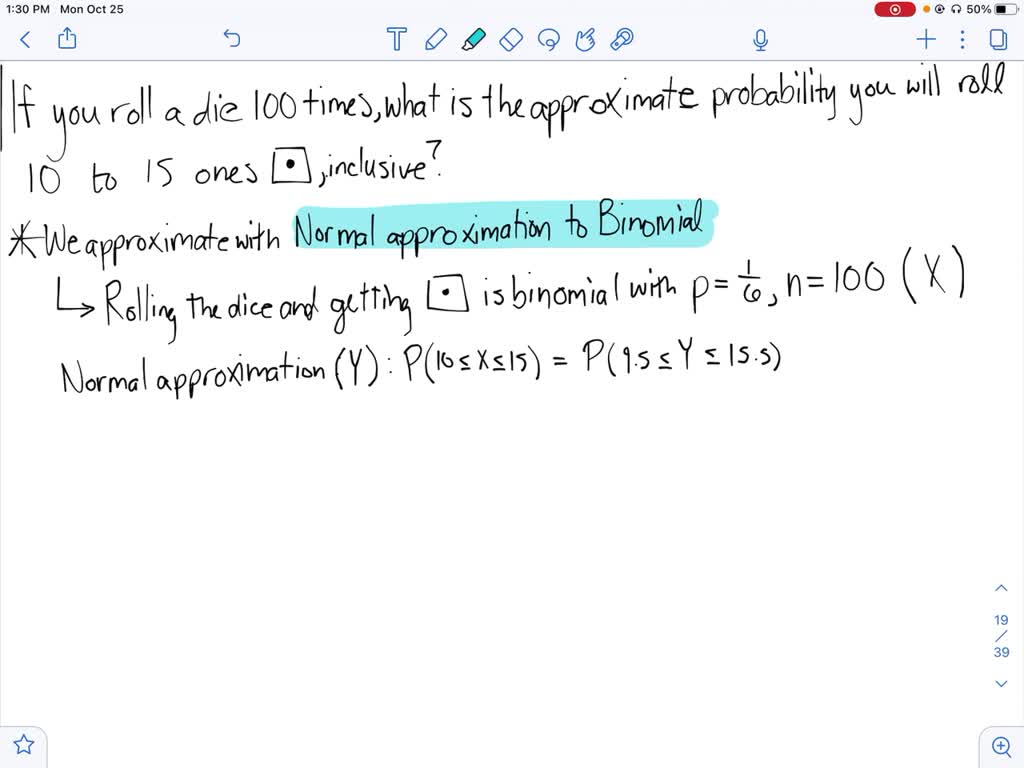 1:30 PM Mon Oct 25
50%
If you roll a die 100 times, what is the approximate probability you will roll
10 to 15 ones ⚀, inclusive?
* We approximate with Normal approximation to Binomial
↳ Rolling the dice and getting ⚀ is binomial with p = 1/6, n = 100 (X)
Normal approximation (Y) : P(10 ≤ X ≤ 15) = P(9.5 ≤ Y ≤ 15.5)
19
/
39